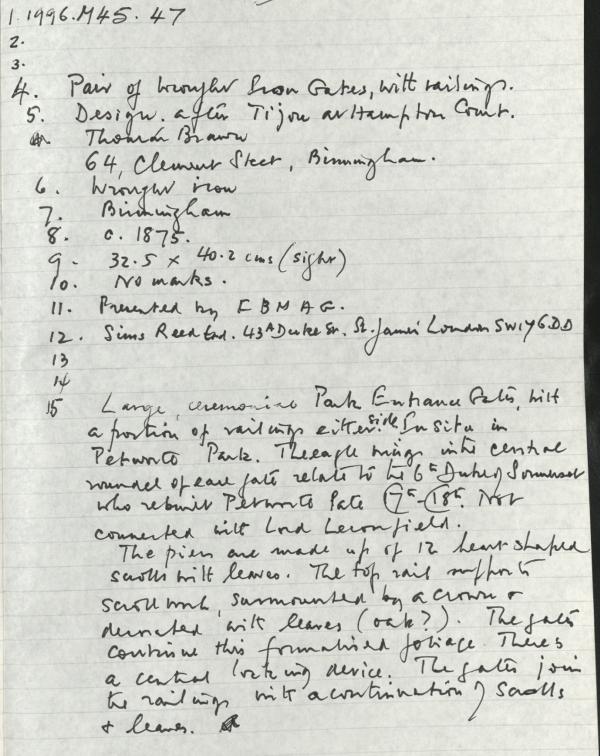 1. 1996.M45.47
2.
3.
4. Pair of Wrought Iron Gates, with railings.
5. Design. after Tijou at Hampton Court.
Thomas Brawn
64, Clement Street, Birmingham.
6. Wrought iron
7. Birmingham
8. c. 1875.
9. 32.5 x 40.2 cms (sight)
10. No marks.
11. Presented by FBMAG.
12. Sims Reed Ltd. 43A Duke St. St. James London SW1Y6DD
13
14
15 Large, ceremonial Park Entrance Gates, with
a portion of railings either side In situ in
Petworth Park. The eagle wings in the central
roundel of each gate relate to the 6th Duke of Somerset
who rebuilt Petworth late 17th-18th. Not
connected with Lord Leconfield.
The piers are made up of 12 heart shaped
scrolls with leaves. The top rail supports
scroll work, surmounted by a crown &
decorated with leaves (oak?). The gates
continue this formalised foliage. There's
a central locking device. The gates join
the railings with a continuation of scrolls
& leaves.